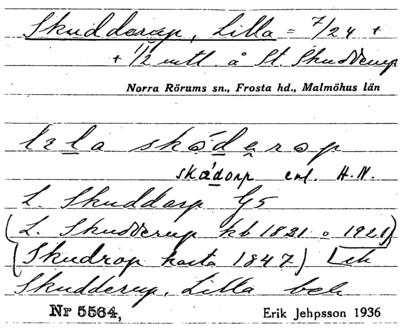 Skudderup, Lilla = 7/24 +
+ 1/2 utl. å St. Skudderup
Norra Rörums sn., Frosta hd., Malmöhus län
lɪla skóderop
skádorp enl. H.N.
L. Skuddarp G5
(L. Skudderup kb 1821 o 1921)
(Skudrop karta 1847)
Skudderup, Lilla beb
Nr 5564, Erik Jehpsson 1936